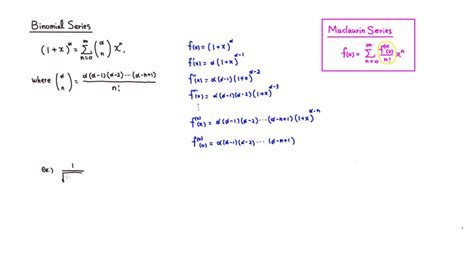 Binomial Series
(1+x)^α = ∑_{n=0}^{∞} (α n) x^n,
where (α n) = α(α-1)(α-2)⋯(α-n+1) / n!
f(x) = (1+x)^α
f'(x) = α(1+x)^{α-1}
f''(x) = α(α-1)(1+x)^{α-2}
f'''(x) = α(α-1)(α-2)(1+x)^{α-3}
⋮
f^{(n)}(x) = α(α-1)(α-2)⋯(α-n+1)(1+x)^{α-n}
f^{(n)}(0) = α(α-1)(α-2)⋯(α-n+1)
Maclaurin Series
f(x) = ∑_{n=0}^{∞} f^{(n)}(0)/n! x^n
ex.) 1/√